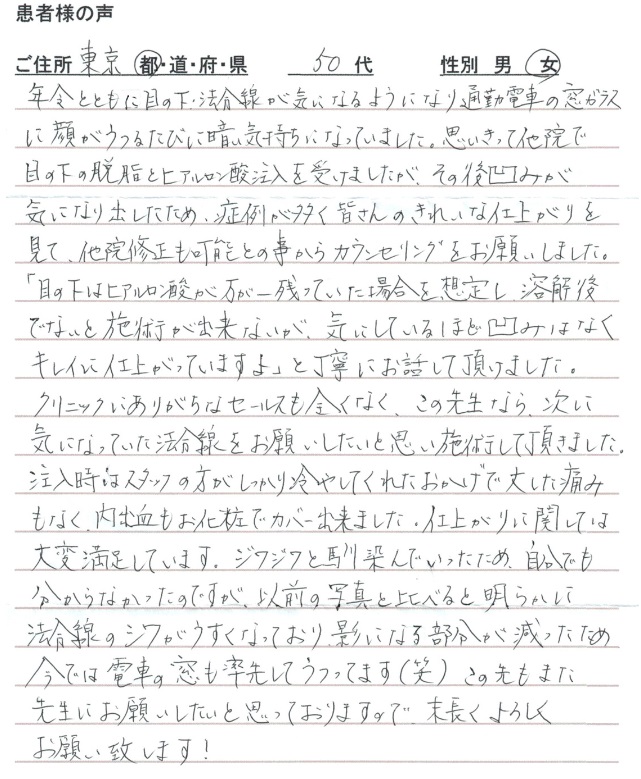 患者様の声
ご住所 東京 都・道・府・県 50 代 性別 男 女
年令とともに目の下・法令線が気になるようになり通勤電車の窓ガラス
に顔がうつるたびに暗い気持ちになっていました。思いきって他院で
目の下の脱脂とヒアルロン酸注入を受けましたが、その後凹みが
気になり出したため、症例が多く皆さんのきれいな仕上がりを
見て、他院修正も可能との事からカウンセリングをお願いしました。
「目の下はヒアルロン酸が万が一残っていた場合を想定し、溶解後
でないと施術が出来ないが、気にしているほど凹みはなく
キレイに仕上がっていますよ」と丁寧にお話して頂けました。
クリニックにありがちなセールスも全くなく、この先生なら、次に
気になっていた法令線をお願いしたいと思い施術して頂きました。
注入時はスタッフの方がしっかり冷やしてくれたおかげで大した痛み
もなく、内出血もお化粧でカバー出来ました。仕上がりに関しては
大変満足しています。ジワジワと馴染んでいったため、自分でも
分からなかったのですが、以前の写真と比べると明らかに
法令線のシワがうすくなっており、影になる部分が減ったため
今では電車の窓も率先してうつってます(笑)この先もまた
先生にお願いしたいと思っておりますので、末長くよろしく
お願い致します!